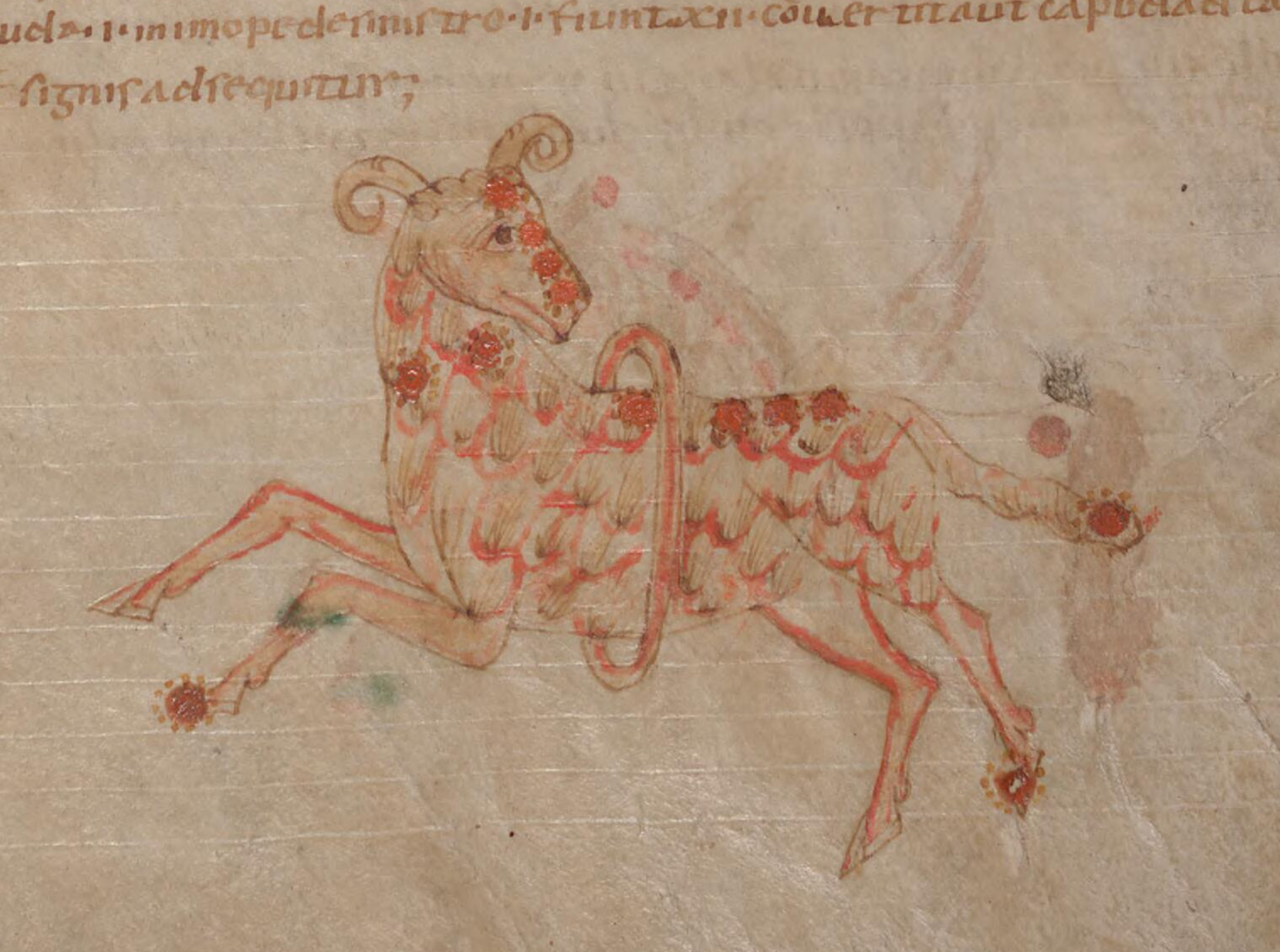 uda · i · in imo pede sinistro · i · fiunt · xii · convertit aut caput ad
signis adsequitur;